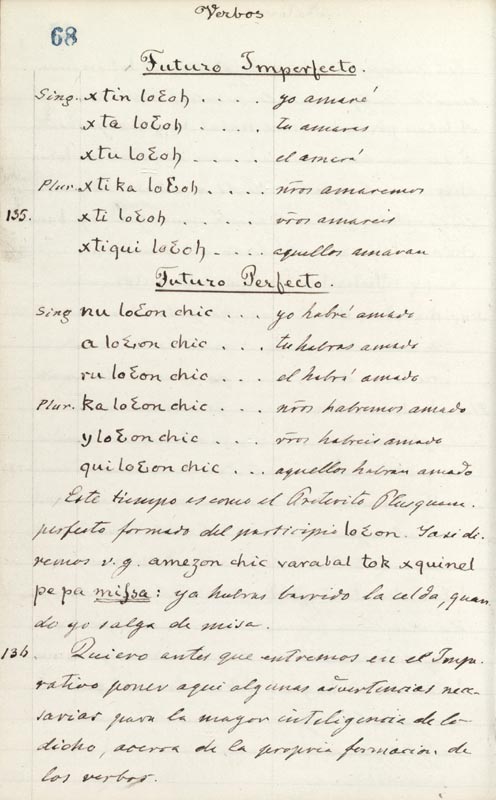 Verbos
68
Futuro Imperfecto.
Sing. xtin loƐoh . . . . yo amaré
xta loƐoh . . . . tu amaras
xtu loƐoh . . . . el amará
Plur. xtika loƐoh . . . . nr̃os amaremos
135. xti loƐoh . . . . vr̃os amareis
xtiqui loƐoh . . . . aquellos amaran
Futuro Perfecto.
Sing nu loƐon chic . . . yo habré amado
a loƐon chic . . . tu habras amado
ru loƐon chic . . . el habrá amado
Plur. ka loƐon chic . . . nr̃os habremos amado
y loƐon chic . . . vr̃os habreis amado
qui loƐon chic . . . aquellos habran amado
Este tiempo es como el Preterito Plusquam-
perfecto formado del participio loƐon. Ya si di-
remos v.g. amezon chic varabal tok xquinel
pe pa missa: ya habras barrido la celda, quan-
do yo salga de misa.
136. Quiero antes que entremos en el Impe-
rativo poner aqui algunas advertencias nece-
sarias para la mayor inteligencia de lo
dicho, acerca de la propria formacion de
los verbos.